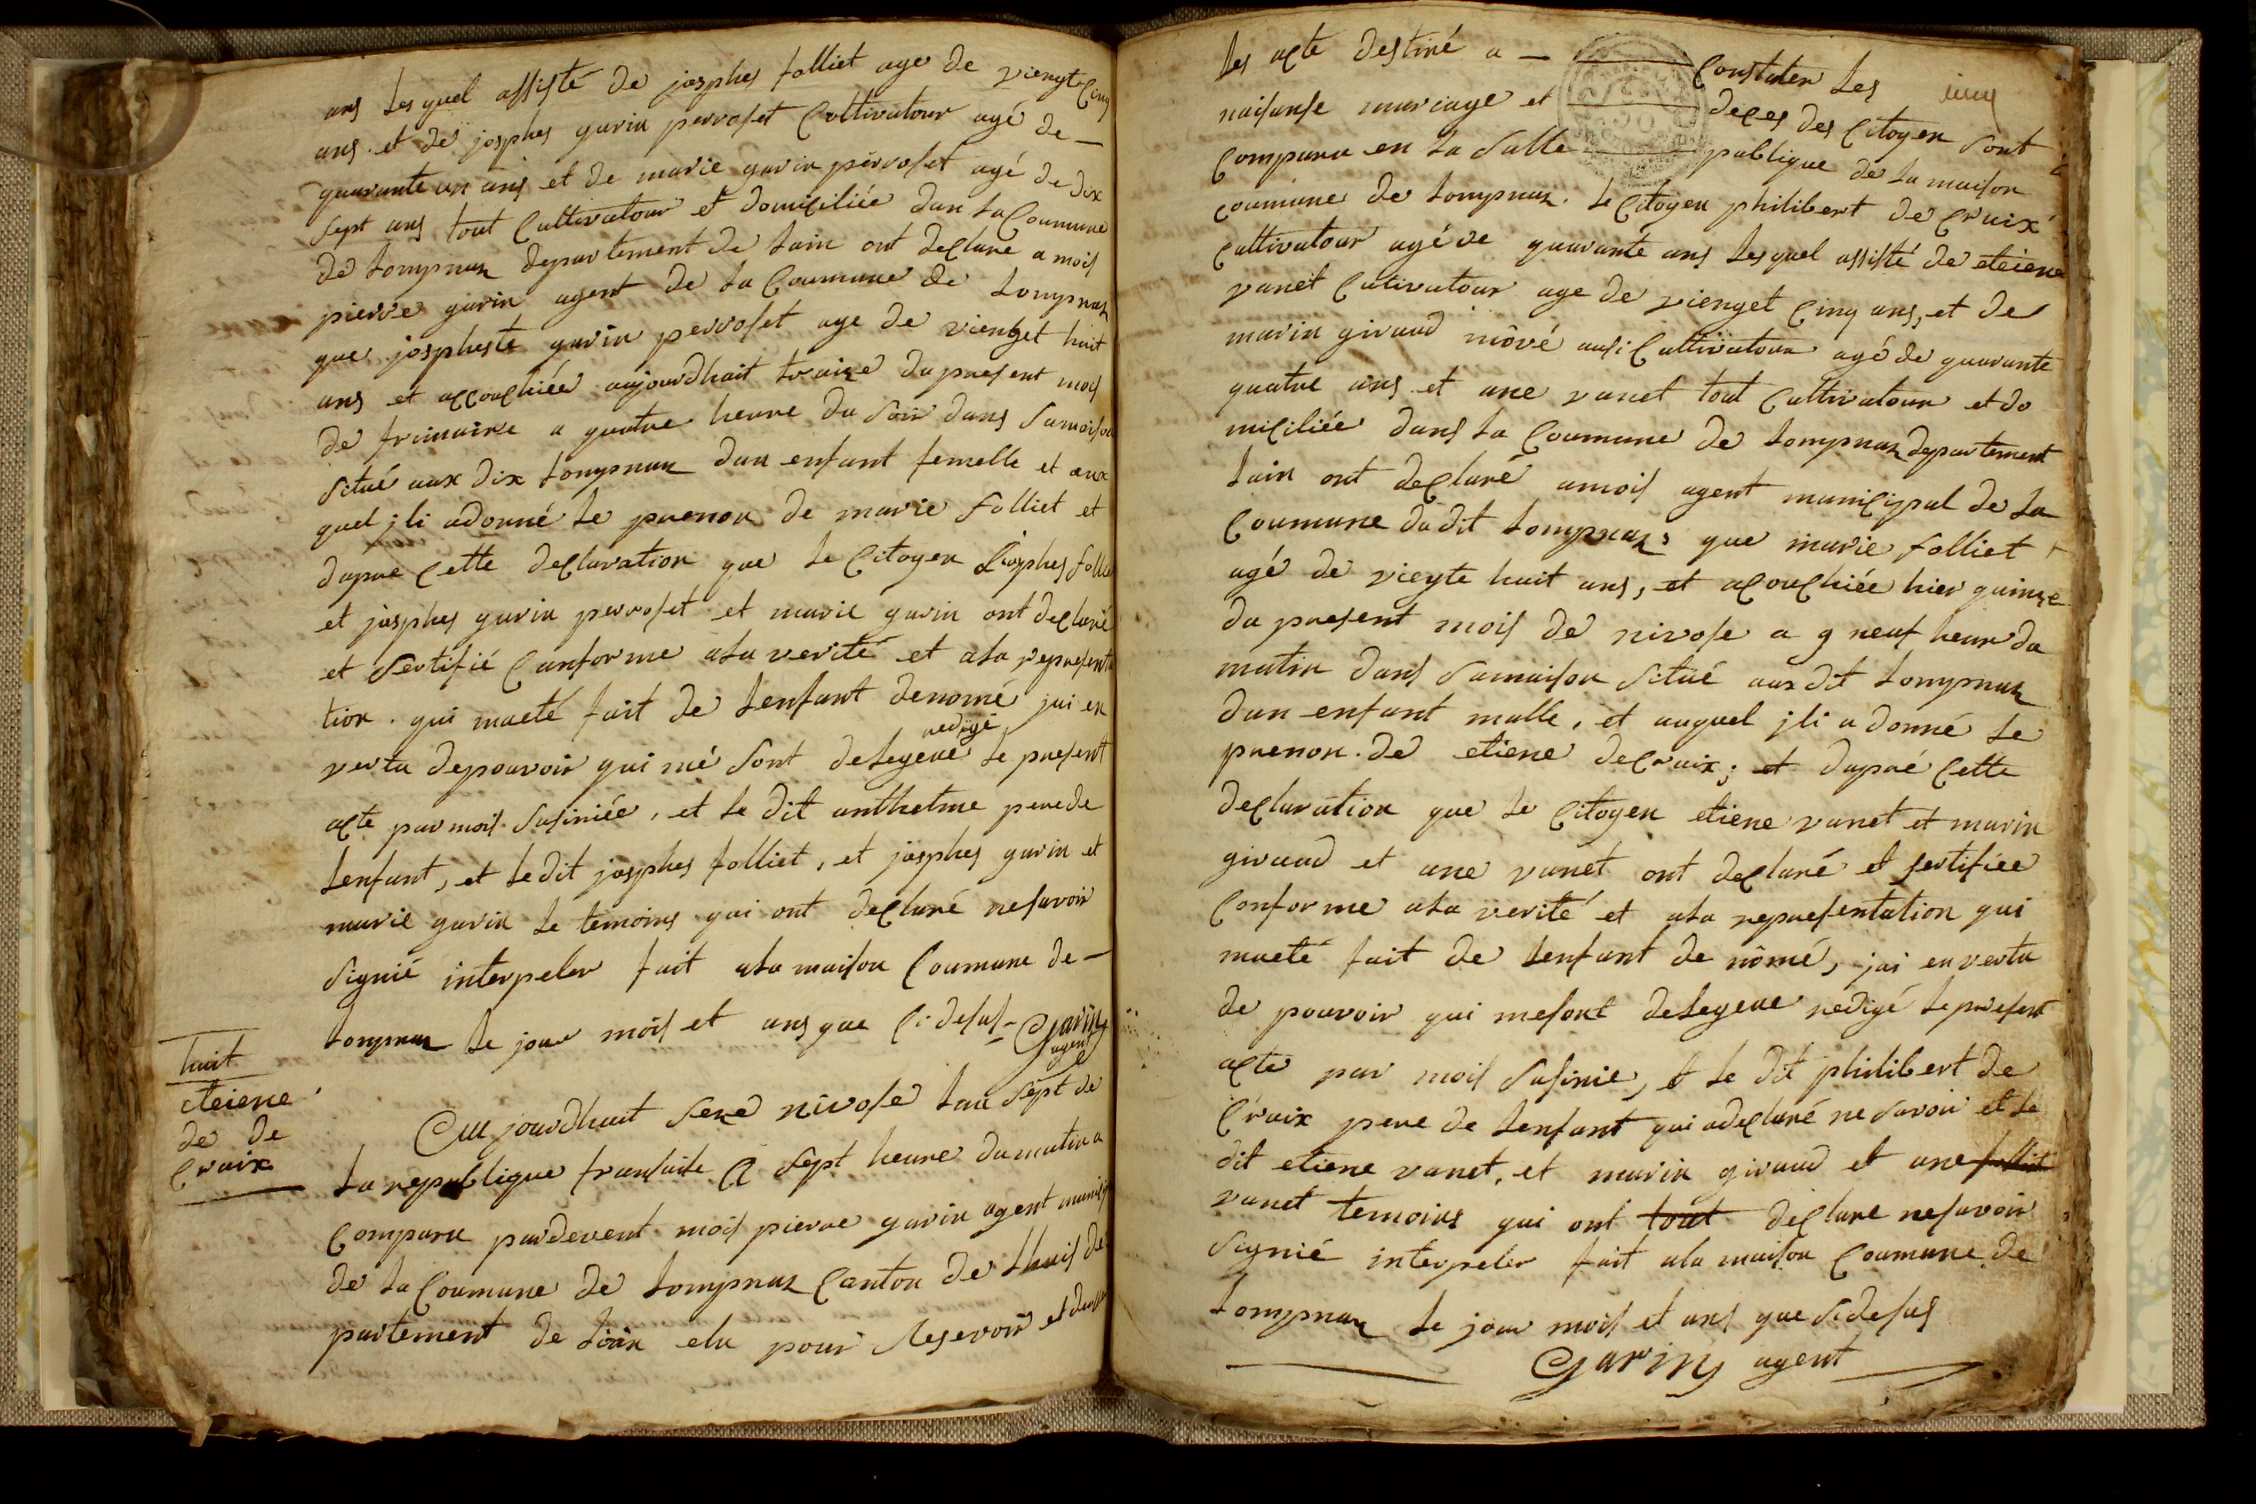 ans lesquel assisté de josphes folliet age de viengte cinq
ans. et de josphes gurin perroset Cultivatour agé de —
quarante un ans et de marie gurin perroset agé de dix
sept ans tout Cultivatour et domiciliée dan la Coumune
de Lompnaz departement de Lain ont declare a mois
pierre gurin agent de la Coumune de Lompnaz
que jospheste gurin perroset age de vienget huit
ans et accouchiée aujourdhuit traize du present mois
de frimaire a quatre heure du soir dans samaison
situé aux dix Lompnaz dun enfant femelle et aux
quel jli adonné le prenon de marie folliet et
dapre Cette declaration que le Citoyen josphes follie
et josphes gurin perroset et marie gurin ont declaré
et sertifié Conforme ala verité et ala represent
tion. qui maeté fait de lenfant denomé jai en
redigé
vertu depouvoir qui mé sont delegeue le present
acte par mois susiniée, et le dit anthelme pere de
Lenfant, et ledit josphes folliet, et josphes gurin et
marie gurin le temoins qui ont declaré nesavoir
signié interpeler fait ala maison Coumune de —
Lompnaz le jour mois et ans que Ci desus — Garin
agent
huit
eteiene
de de
Craix
Aujourdhuit seze nivose lan sept de
La republique fransaise A sept heure dumatin a
Comparu pardevent mois pierre gurin agent munisi
de la Coumune de Lompnaz Canton de Lhuis de
partement de Lain elu pour resevoir et
les acte destiné a — Constater Les
naisanse mariage et deces des Citoyen sont
Comparu en la salle publique de la maison
coumune de Lompnaz. le Citoyen philibert de Craix
Cultivatour agé de quarante ans lesquel assisté de eteiene
vanet Cutivatour age de vienget Cinq ans, et de
marin giraud môvé ausi Cultivatour agé de quarante
quatre ans et ane vanet tout Cultivatour et do
miciliée dans la Coumune de Lompnaz departement
Lain ont declaré amois agent municipal de la
Coumune dudit Lompnaz, que marie folliet
agé de viengte huit ans, et acouchiée hier quinze
du present mois de nivose a 9 neuf heur du
matin dans samaison situé aux dit Lompnaz
dun enfant malle, et auquel jli a donné le
prenon. de etiene decraix; et dapré Cette
declaration que le Citoyen etiene vanet et marin
giraud et ane vanet ont declaré et sertifiée
Conforme ala verité et ala representation qui
maeté fait de lenfant de nômé, jai en vertu
de pouvoir qui mesont delegeue redigé lepresent
acte par mois susinie, et le dit philibert de
Craix pere de lenfant qui adeclaré ne savoir et le
dit etiene vanet, et marin giraud et ane folliet
vanet temoins qui ont tout declare nesavoir
signié interpeler fait ala maison Coumune de
Lompnaz le jour mois et ans que sidesus
Garin agent